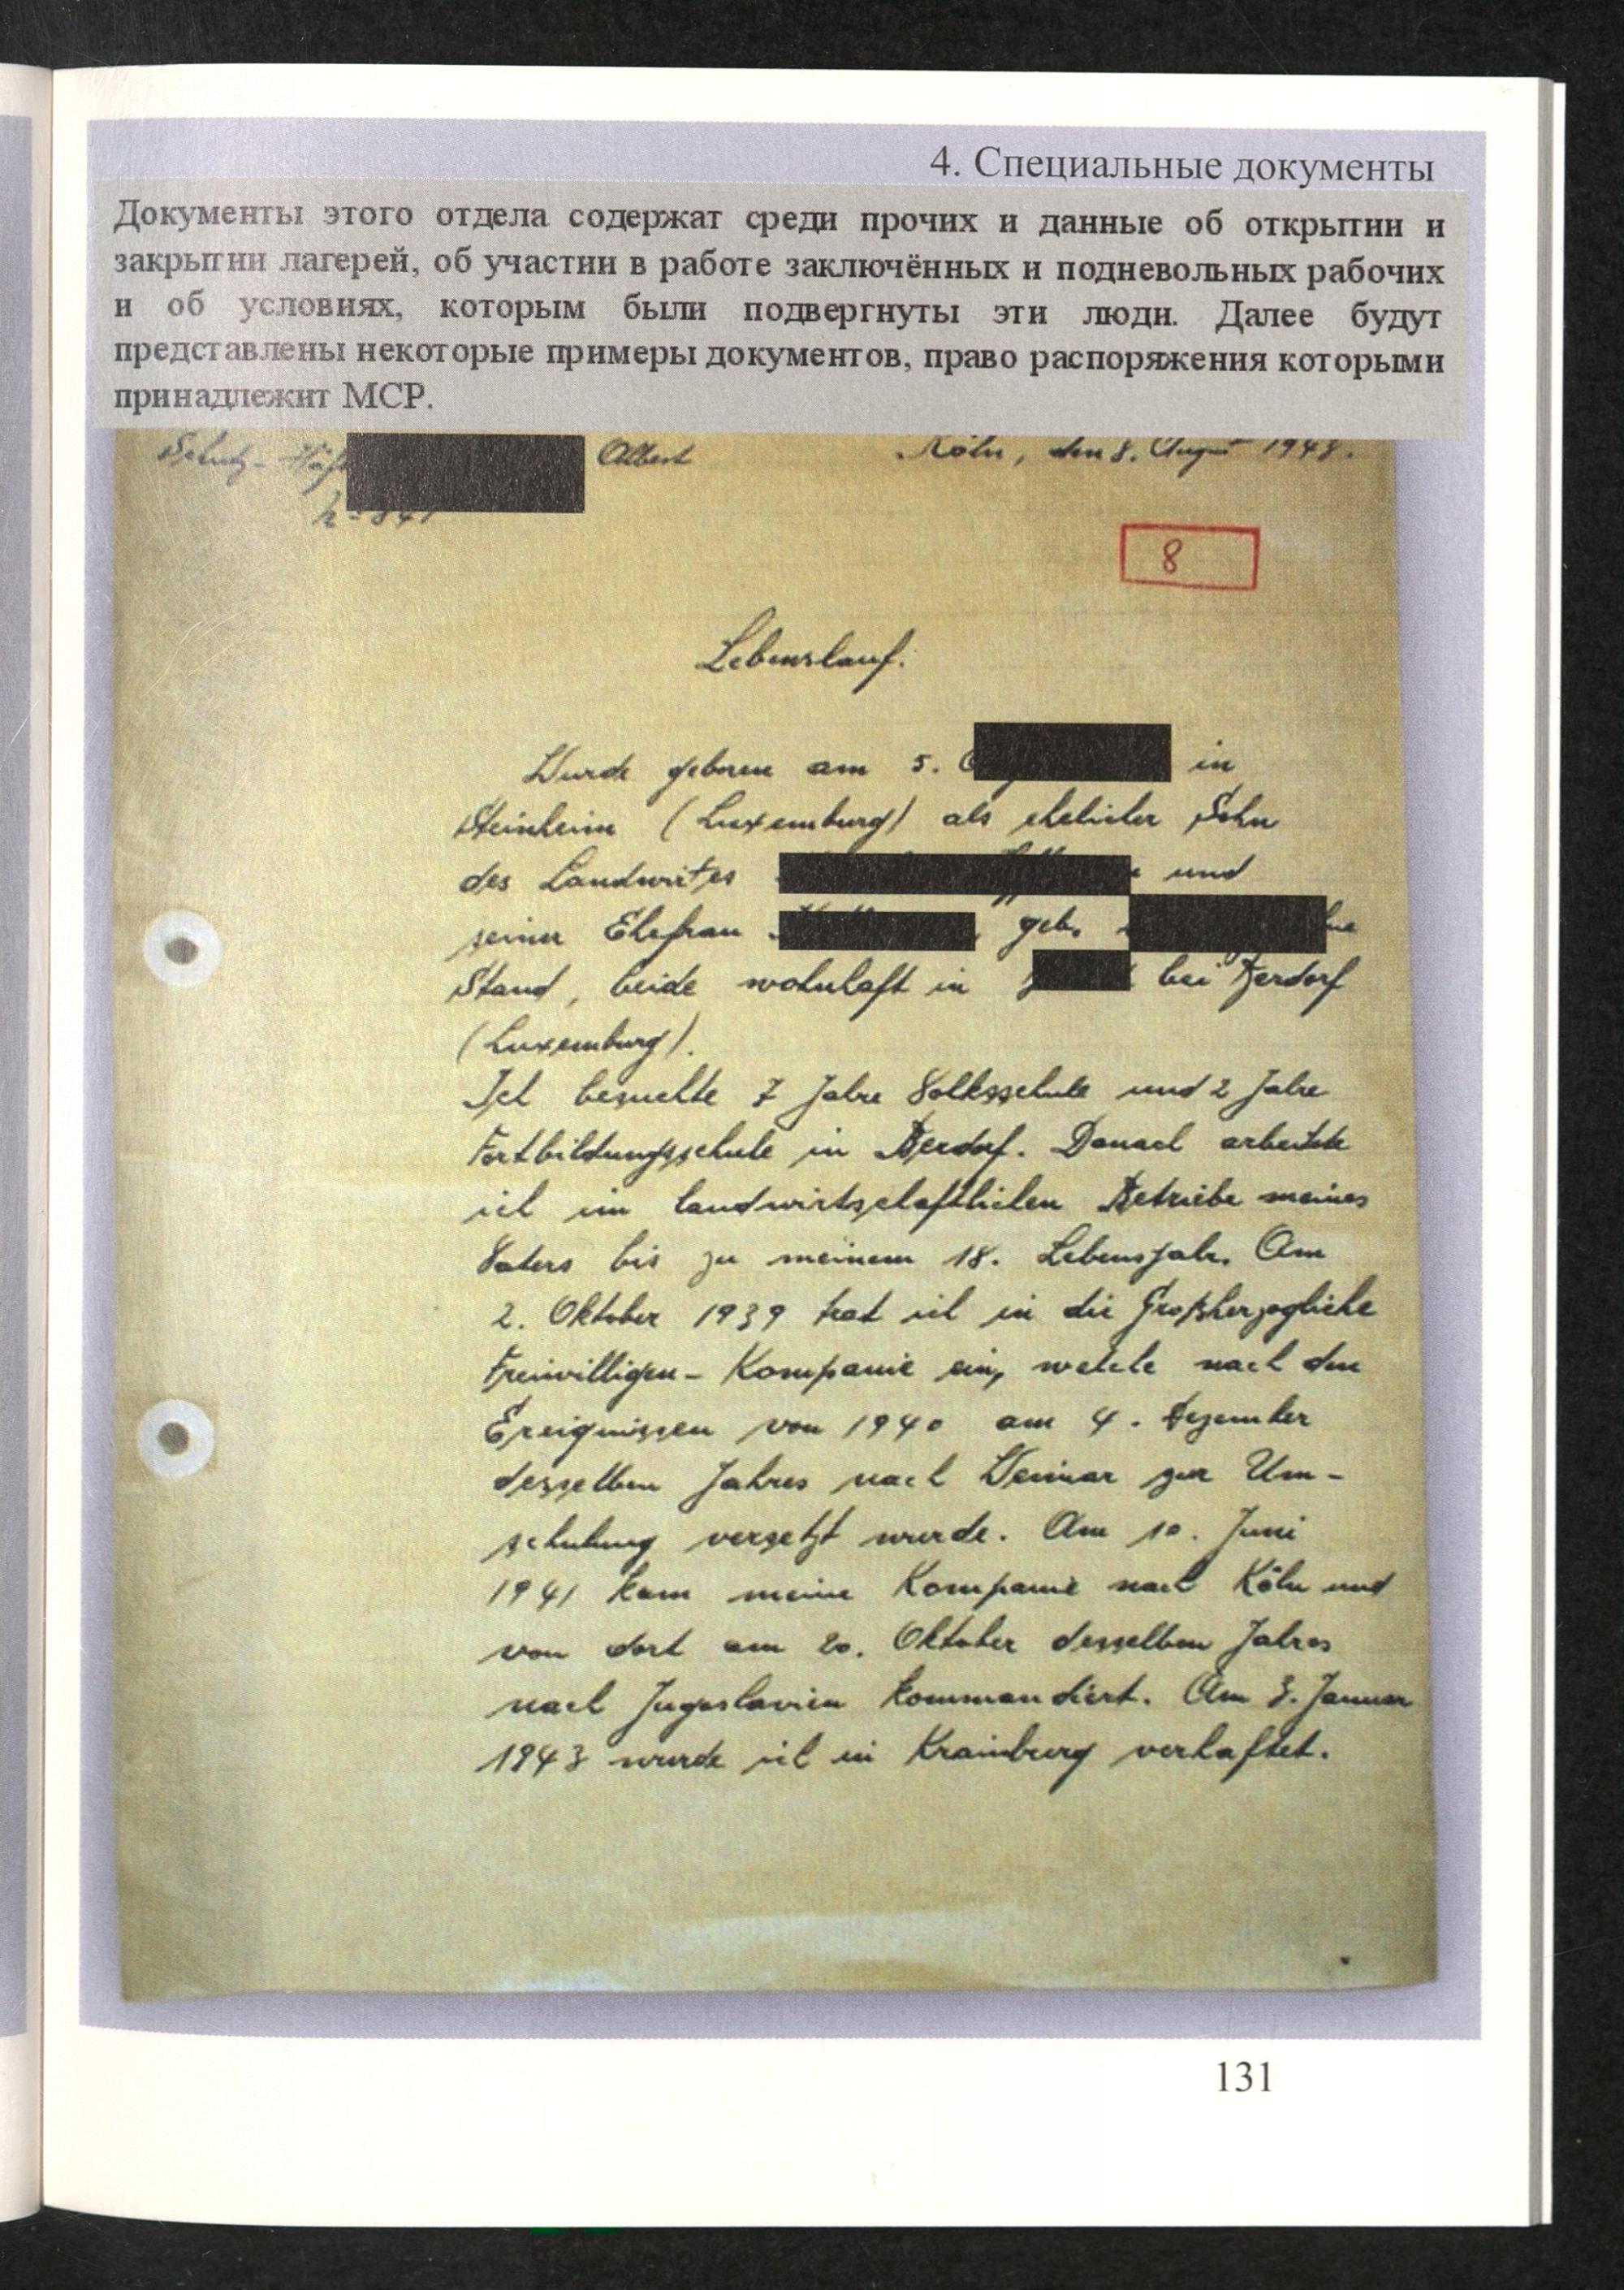 4. Специальные документы
Документы этого отдела содержат среди прочих и данные об открытии и
закрытии лагерей, об участии в работе заключённых и подневольных рабочих
и об условиях, которым были подвергнуты эти люди. Далее будут
представлены некоторые примеры документов, право распоряжения которыми
принадлежит МСР.
Schutz- Albert Köln, den 8. August 1943.
8
Lebenslauf.
Wurde geboren am 5. in
Steinheim (Luxemburg) als ehelicher Sohn
des Landwirtes und
seiner Ehefrau geb.
Stand, beide wohnhaft in bei Berdorf
(Luxemburg).
Ich besuchte 7 Jahre Volksschule und 2 Jahre
Fortbildungsschule in Berdorf. Danach arbeitete
ich im landwirtschaftlichen Betriebe meines
Vaters bis zu meinem 18. Lebensjahr. Am
2. Oktober 1939 trat ich in die Großherzogliche
Freiwilligen-Kompanie ein, welche nach den
Ereignissen von 1940 am 4. Dezember
desselben Jahres nach Weimar zur Um-
schulung versetzt wurde. Am 10. Juni
1941 kam meine Kompanie nach Köln und
von dort am 20. Oktober desselben Jahres
nach Jugoslavien kommandiert. Am 3. Januar
1943 wurde ich in Krainburg verhaftet.
131